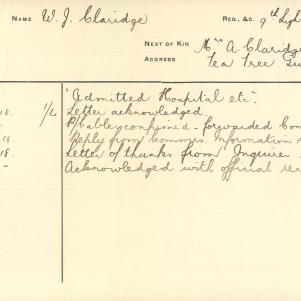 NAME W. J. Claridge REG., &C. 9th Ligh
NEXT OF KIN Mrs A Claridge
ADDRESS Tea Tree Gu
"Admitted Hospital etc".
18. 1/L Letter acknowledged.
P/Cable confirmed. forwarded Com
Reply from Commrs. Information
18. Letter of thanks from Inquirer.
Acknowledged with official